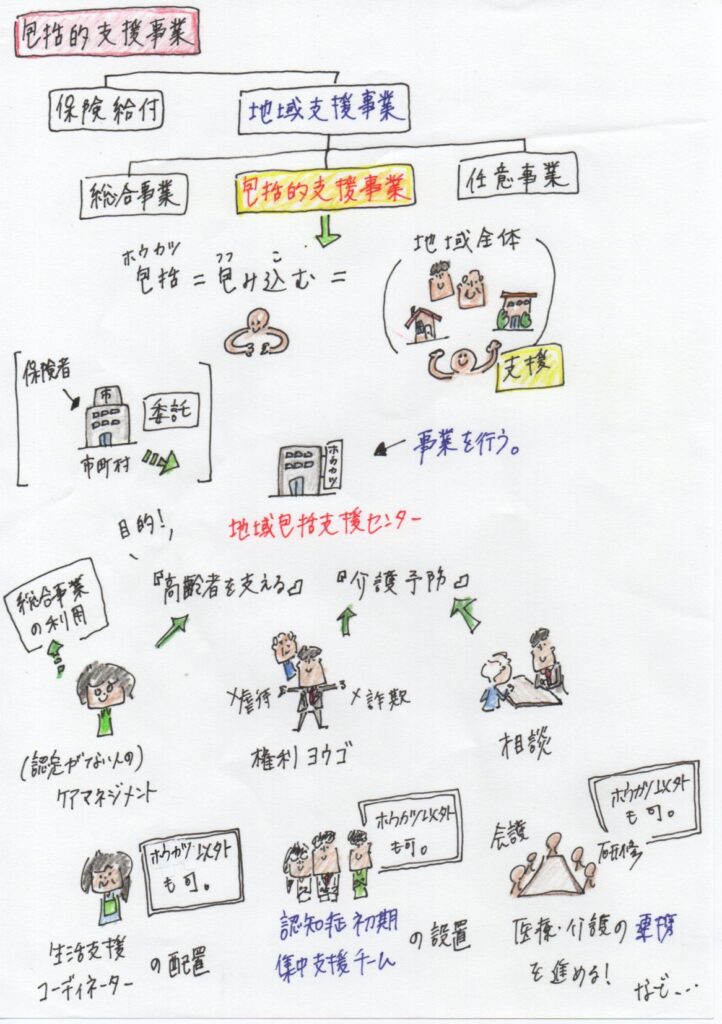 包括的支援事業
保険給付
地域支援事業
総合事業
包括的支援事業
任意事業
ホウカツ
包括 = 包み込む =
つつ こ
地域全体
支援
保険者
市
委託
市町村
ホウカツ
事業を行う。
地域包括支援センター
目的!,
『高齢者を支える』『介護予防』
総合事業
の利用
×虐待
×詐欺
(認定がない人の)
ケアマネジメント
権利ヨウゴ
相談
ホウカツ以外
も可。
ホウカツ以外
も可。
ホウカツ以外
も可。
会議
研修
生活支援
コーディネーター
の配置
認知症初期
集中支援チーム
の設置
医療・介護の連携
を進める!
など...